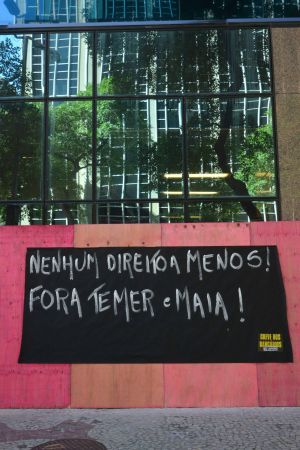 NENHUM DIREITO A MENOS!
FORA TEMER e MAIA!
GREVE NOS
BANCÁRIOS